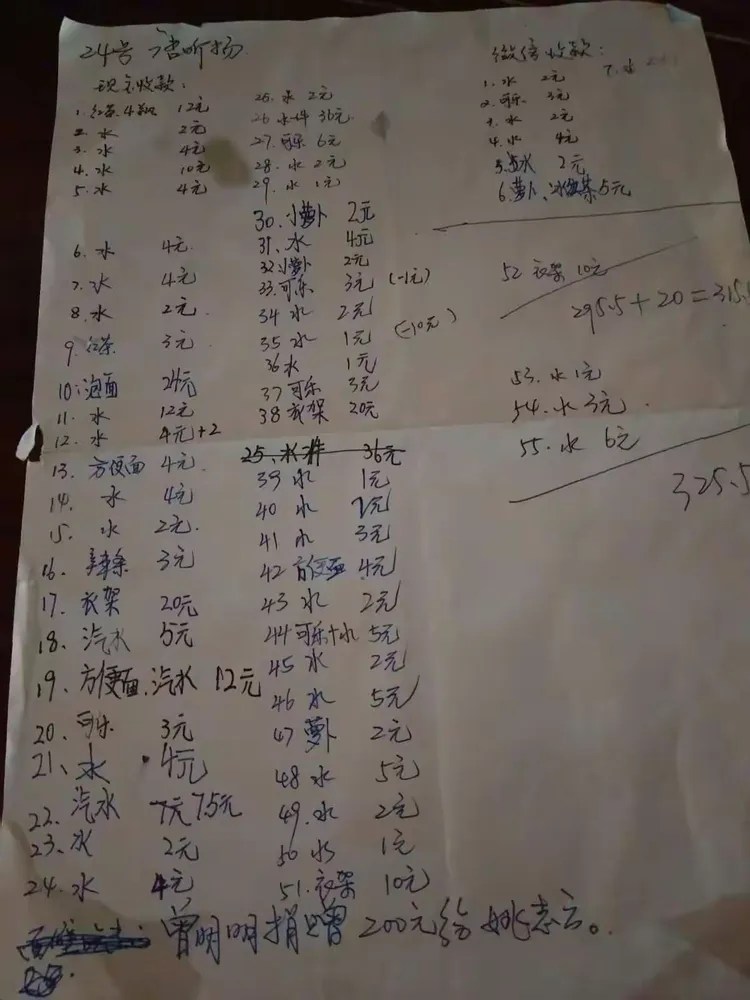 24号
现金收款：
1. 红茶.4瓶 12元
2. 水 2元
3. 水 4元
4. 水 10元
5. 水 4元
6. 水 4元
7. 水 4元
8. 水 2元
9. 红茶 3元
10. 泡面 24元
11. 水 12元
12. 水 4元+2
13. 方便面 4元
14. 水 4元
15. 水 2元
16. 辣条 3元
17. 衣架 20元
18. 汽水 5元
19. 方便面、汽水 12元
20. 可乐 3元
21、水 4元
22. 汽水
23. 水 2元
24. 水 4元
25. 水 2元
26 水 36元
27. 可乐 6元
28. 水 2元
29. 水 1元
30. 小萝卜 2元
31、水 4元
32. 小萝卜 2元
33. 可乐 3元 (-1元)
34 水 2元
35 水 1元 (-10元)
36 水 1元
37 可乐 3元
38 衣架 20元
25、水 36元
39 水 1元
40 水
41 水 3元
42 方便面 4元
43 水 2元
44 可乐+水 5元
45 水 2元
46 水 5元
47 萝卜 2元
48 水 5元
49. 水 2元
50 水 1元
51. 衣架 10元
微信收款：
1. 水 2元
2. 可乐 3元
3. 水 2元
4. 水 4元
5. 盐水 2元
6. 萝卜、冰红茶 5元
7. 水
52 衣架 10元
295.5+20=315.5
53. 水 1元
54. 水 3元
55. 水 6元
325.5
曾明明捐赠200元给姚志云。